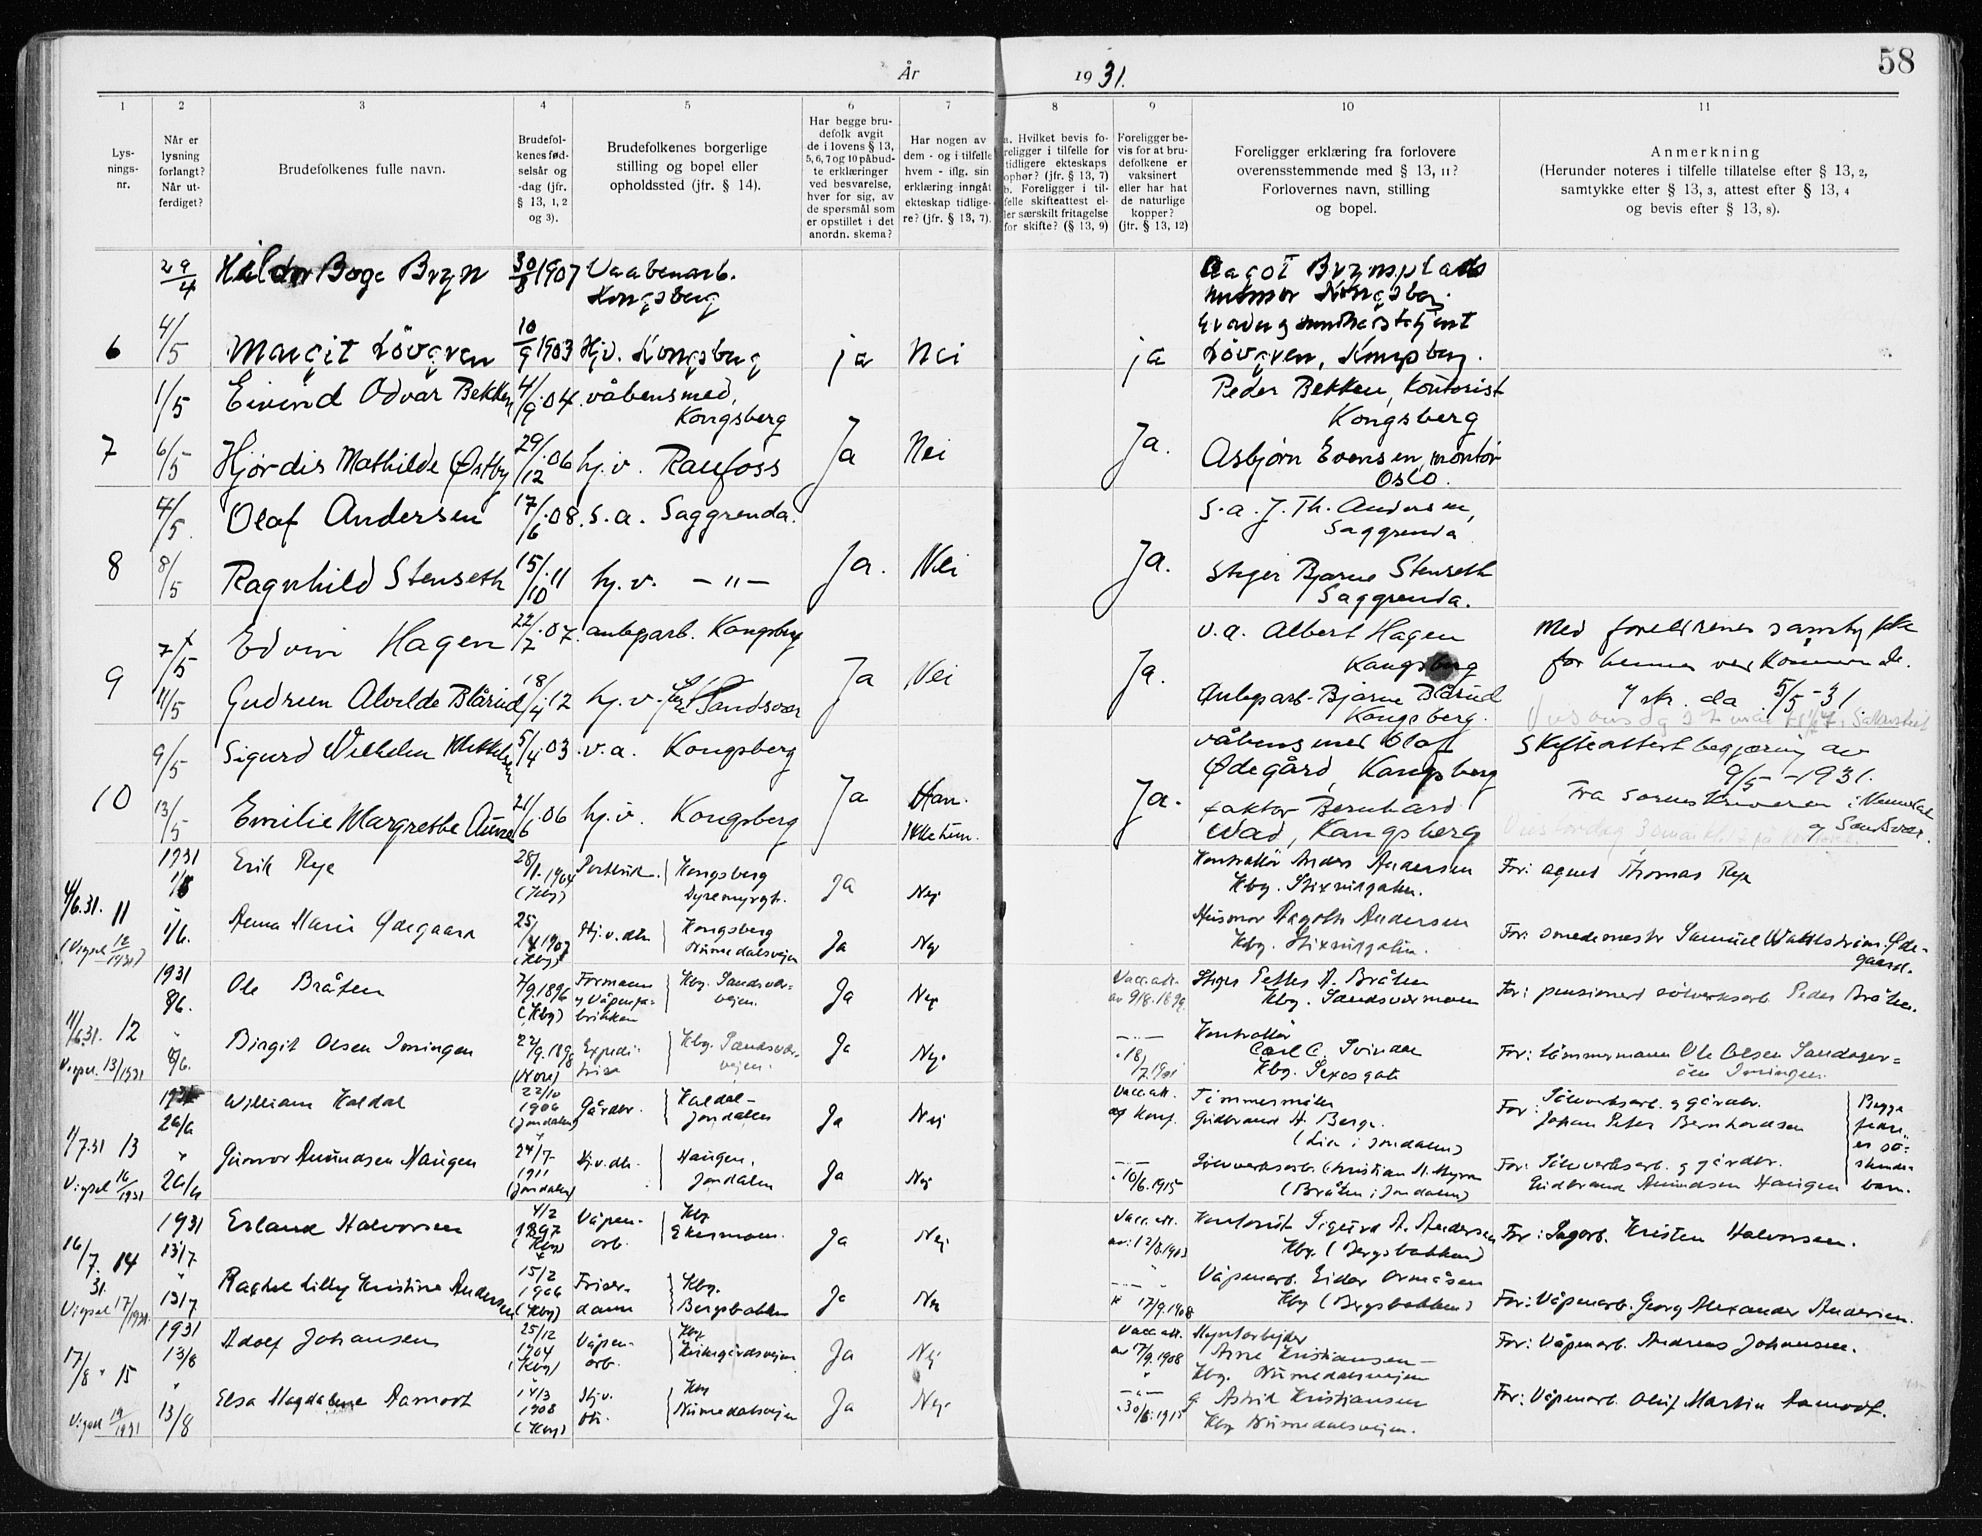 År
1931.
58
1 2 3 4 5 6 7 8 9 10 11
Lys-
nings-
nr.
Når er
lysning
forlangt?
Når ut-
ferdiget?
Brudefolkenes fulle navn.
Brudefol-
kenes fød-
selsår og
-dag (jfr.
§ 13, 1, 2
og 3).
Brudefolkenes borgerlige
stilling og bopel eller
opholdssted (jfr. § 14).
Har begge bru-
defolk avgit
de i lovens § 13,
5, 6, 7 og 10 påbud-
te erklæringer
ved besvarelse,
hver for sig, av
de spørsmål som
er opstillet i det
anordn. skema?
Har nogen av
dem - og i tilfelle
hvem - iflg. sin
erklæring inngåt
ekteskap tidlige-
re? (jfr. § 13, 7).
a. Hvilket bevis fo-
religger i tilfelle for
tidligere ekteskaps
ophør? (jfr. § 13, 7)
b. Foreligger i til-
felle skifteattest el-
ler særskilt fritagelse
for skifte? (§ 13, 9)
Foreligger be-
vis for at bru-
defolkene er
vaksinert
eller har hat
de naturlige
kopper?
(jfr. § 13, 12)
Foreligger erklæring fra forlovere
overensstemmende med § 13, 11?
Forlovernes navn, stilling
og bopel.
Anmerkning
(Herunder noteres i tilfelle tillatelse efter § 13, 2,
samtykke etter § 13, 3, attest efter § 13, 4
og bevis efter § 13, 8).
29/4 Boge Bryn 30/8 1907 Vaabenarb.
Kongsberg
Aagot Brynsplads
husmor Kongsberg.
6 4/5 Margit Lövgren 10/9 1903 Hjv. Kongsberg ja Nei ja
Lövgren, Kongsberg.
1/5 Eivind Odvar Bekken 4/9.04 våbensmed,
Kongsberg
Peder Bekken, Kontorist
Kongsberg
7 6/5 Hjørdis Mathilde Østby 29/12.06 hj.v. Raufoss Ja Nei Ja.
Asbjørn Evensen, montør
Oslo.
4/5. Olaf Andersen 17/6.08. s.a. Saggrenda.
S.a. J. Th. Andersen,
Saggrenda
8 8/5 Ragnhild Stenseth 15/10.11 hj.v. — " — Ja. Nei Ja.
Stiger Bjarne Stenseth
Saggrenda.
7/5 Edvin Hagen 22/7.07. anlegsarb. Kongsberg
v.a. Albert Hagen
Kongsberg
Med foreldrenes samtykke
for hennes vedkommende.
9 11/5 Gudrun Alvilde Blårud 18/4.12 hj.v. Sandsvær Ja Nei Ja.
Anlegsarb. Bjarne Blårud
Kongsberg.
da 5/5-31
9/5 Sigurd Wilhelm Mikkelsen 5/4.03. v.a. Kongsberg
våbensmed Olaf
Ødegård, Kongsberg
Skifteattest begjæring av
9/5-1931.
10 13/5 Emilie Margrethe Aune 21/6.06 hj.v. Kongsberg Ja Han.
Ikke hun.
Ja.
faktor Bernhard
Wad, Kongsberg
Fra sorenskriveren i Numedal
og Sandsvær.
1931
Erik Rye 28/1.1904
(Kbg) Kongsberg
Dyremyrgt. Ja Nej
Kontrollør Anders Andersen
Kbg. Stixrudgaten.
For: agent Thomas Rye
4/6.31. 11 1/6. Anna Marie Ødegaard
(Kbg) Hj.v. dtr. Kongsberg
Numedalsvejen Ja Nej
(Vigsel 12/1931)
Husmor Aagoth Andersen
Kbg. Stixrudgaten.
For: smedemester Samuel Ødegaard.
1931
8/6. Ole Bråten 7/9.1896
(Kbg) Formann
v Våpenfa-
brikken Kbg. Sandsvær-
vejen. Ja Nej
Vacc.att.
av 9/8.1896.
Stiger Petter A. Bråten
Kbg. Sandsværmoen
For: pensioneret sølverksarb. Peder Bråten.
11/6.31. 12 8/6. Birgit Olsen Imingen 22/9.1898
(Nore) Expedi-
trise Kbg. Sandsvær-
vejen. Ja Nej.
Vigsel. 13/1931
Kontrollør
Carl C. Svinda
Kbg. Sexesgate
For: tømmermann Ole Olsen
Imingen.
26/6 William Haldal 22/10
1906
(Jondalen) Gårdbr. Haldal —
Jondalen Ja Nej
Vacc.att.
Tømmermåler
Gudbrand H. Berge.
(Lia i Jondalen)
For: Sølvverksarb. og gårdbr.
Johan Peter Bernhardsen
1/7.31 13 26/6 Gunvor Amundsen Haugen 24/7.
1911
(Jondalen) Hj.v. dtr. Haugen,
Jondalen Ja Nej
Vigsel 16/1931
10/6.1915
Sølvverksarb. Christian H. Myran
(Bråten i Jondalen)
For: Sølvverksarb. og gårdbr.
Gudbrand Amundsen Haugen
Begge
er sø-
skende-
barn.
1931
13/7 Erland Halvorsen 4/2
1897
(Kbg) Våpen-
arb. Kbg
Ekermoen. Ja Nej
Vacc.att.
Kontorist Sigurd A. Andersen
Kbg. (Bergsbakken)
For: Sagarb. Kristen Halvorsen.
16/7. 31. 14 13/7 Rachel Lilly Kristine Andersen 15/2
1906
(Kbg) Friser-
dame Kbg.
Bergsbakken Ja Nej
Vigsel 17/1931.
17/9.1908
Våpenarb. Eider Ormåsen
Kbg (Bergsbakken)
For: Våpenarb. Georg Alexander Andersen.
1931
13/8 Adolf Johansen 25/12
1904
(Kbg) Våpen-
arb. Kbg
Kirkegårdsvejen Ja Nej
Vacc.att.
av 7/9.1908
Myntarbejder
Arne Kristiansen —
Kbg. Numedalsvejen
For: Våpenarb. Andreas Johansen.
17/8 " 15 13/8 Elsa Magdalene Aamodt 14/3
1908
(Kbg) Hj.v.
dtr. Kbg
Numedalsvejen Ja Nej.
Vigsel 19/1931
30/6.1915
g Astrid Kristiansen
Kbg Numedalsvejen.
For: Våpenarb. Oluf Martin Aamodt.